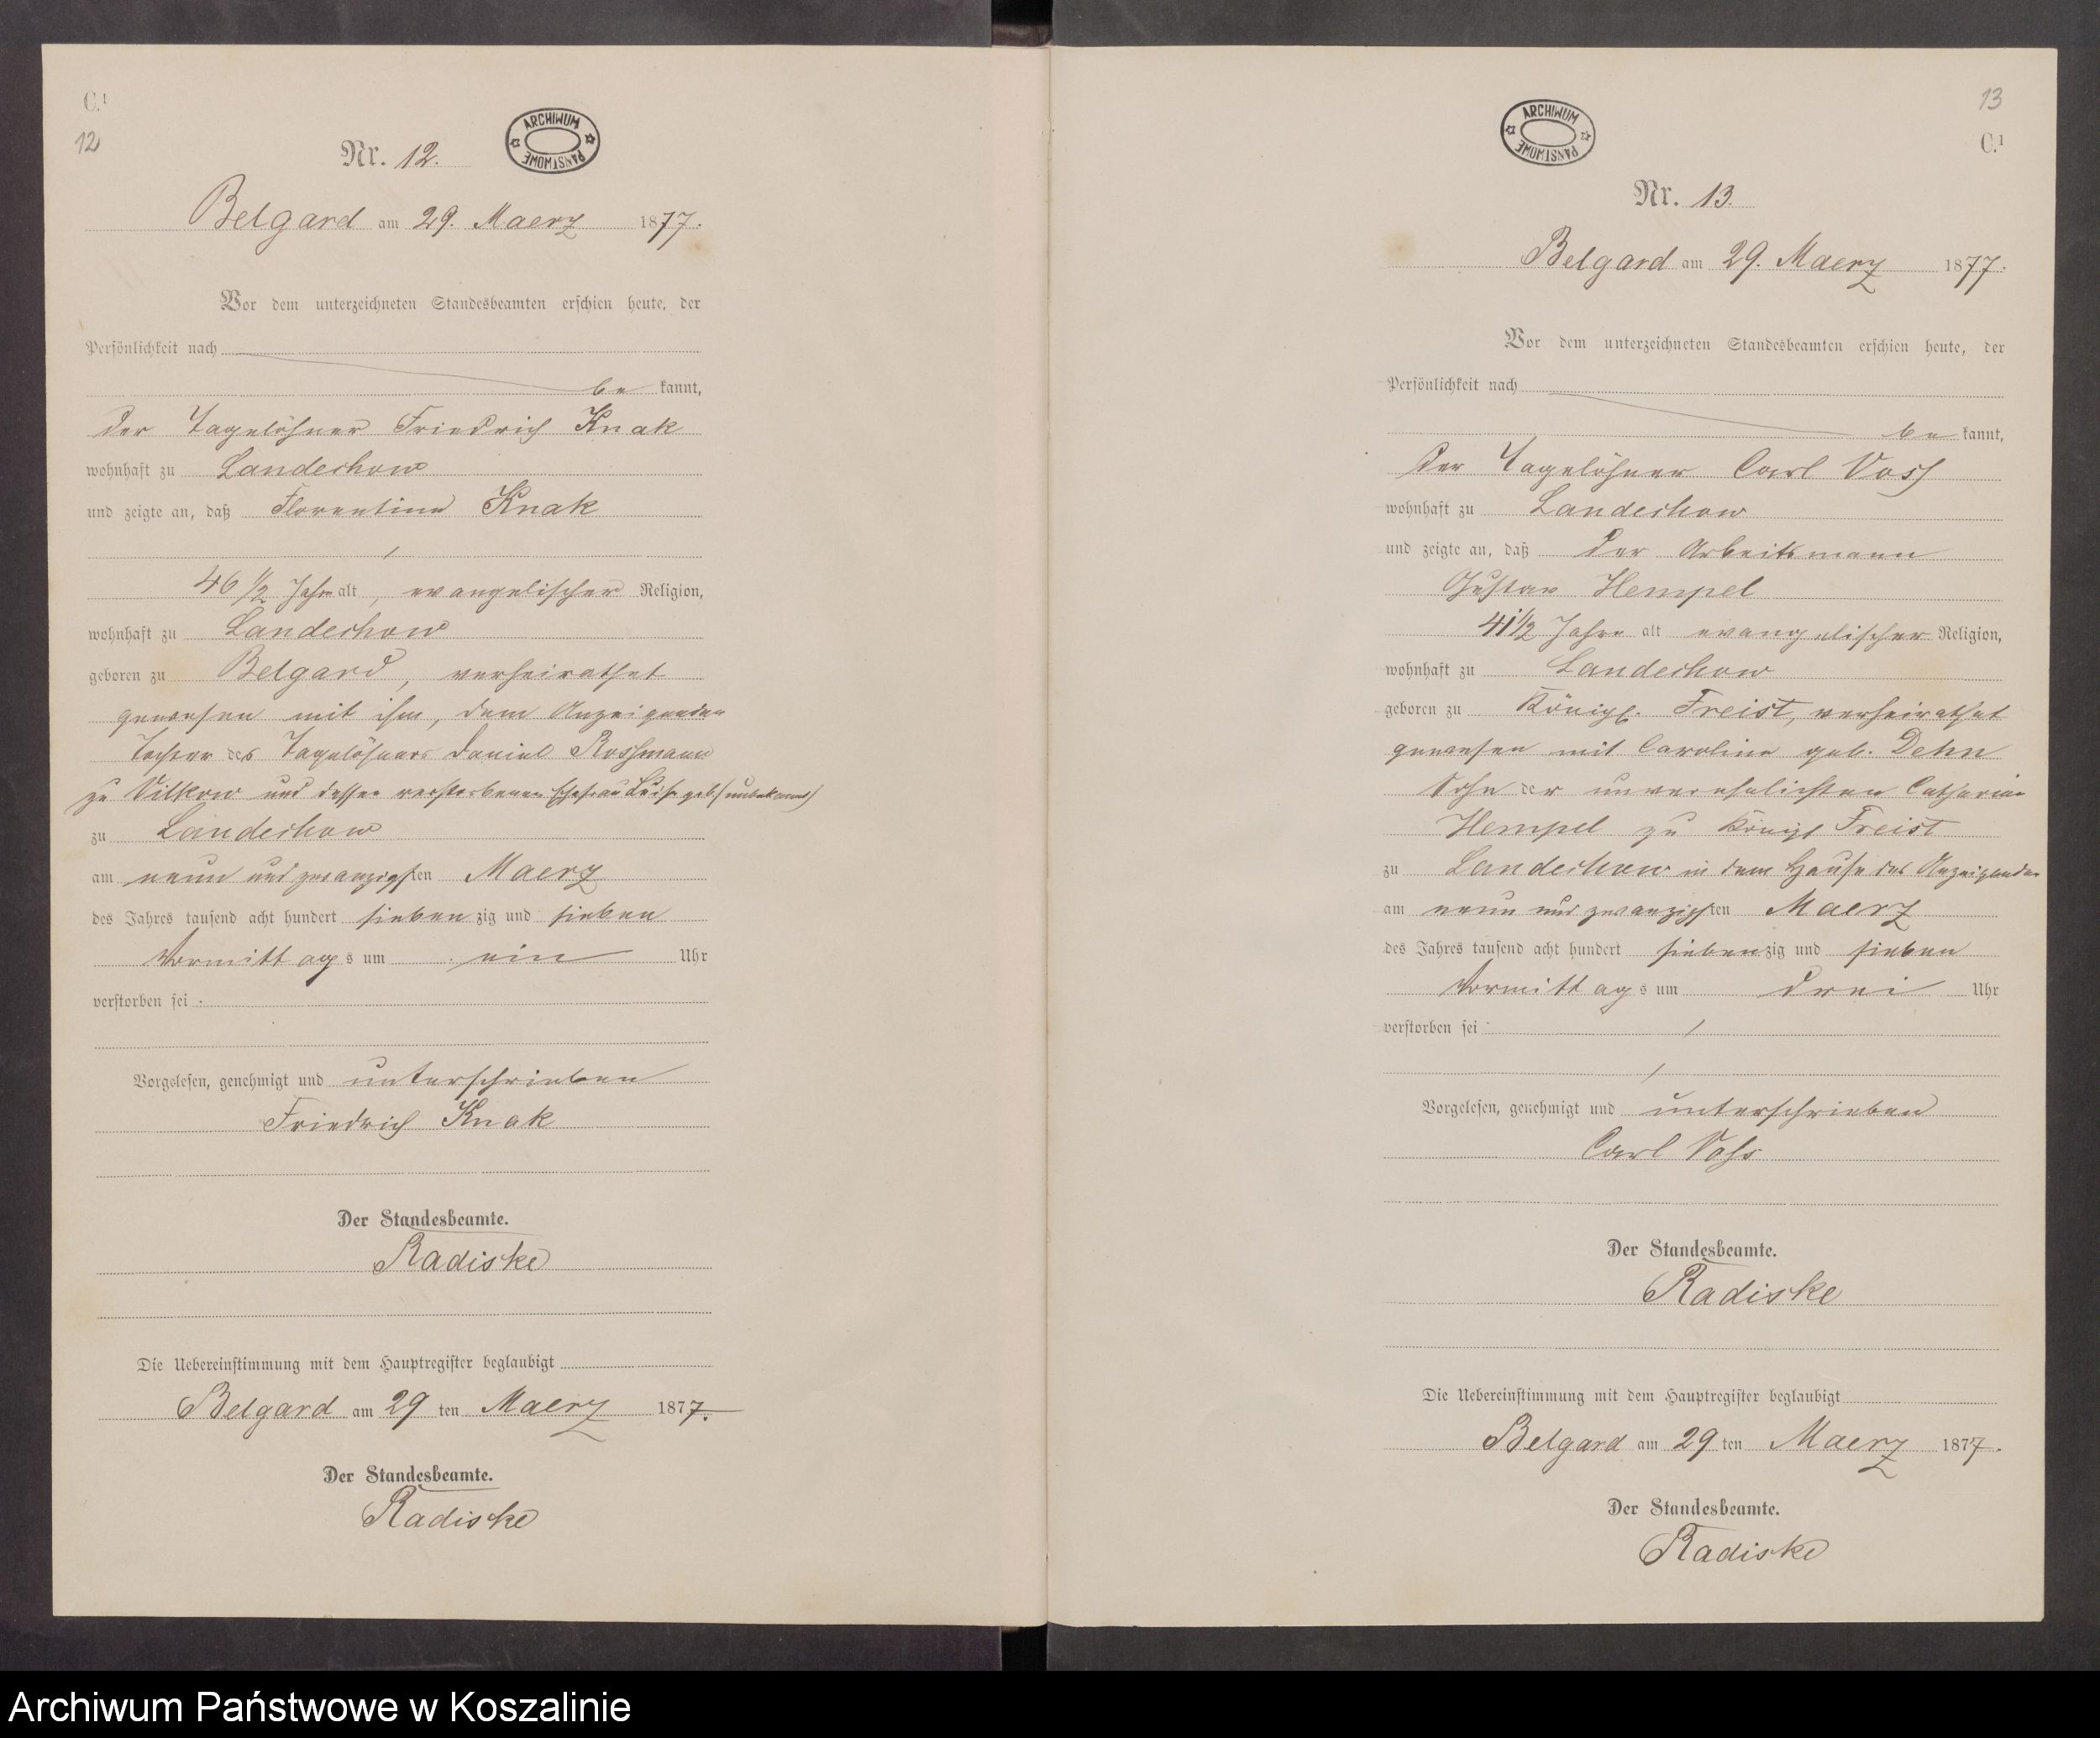 C.¹
12
Nr. 12.
ARCHIWUM PAŃSTWOWE
Belgard am 29. Maerz 1877.
Vor dem unterzeichneten Standesbeamten erschien heute, der
Persönlichkeit nach
be kannt,
der Tagelöhner Friedrich Knak
wohnhaft zu Landechow
und zeigte an, daß Florentine Knak
46 1/2 Jahre alt, evangelischer Religion,
wohnhaft zu Landechow
geboren zu Belgard, verheirathet
gewesen mit ihm, dem Anzeigenden
Tochter des Tagelöhners Daniel Rossmann
zu Vilkow und dessen verstorbenen Ehefrau Luise geb. (unbekannt)
zu Landechow
am neun und zwanzigsten Maerz
des Jahres tausend acht hundert siebenzig und sieben
Vormittags um ein Uhr
verstorben sei.
Vorgelesen, genehmigt und unterschrieben
Friedrich Knak
Der Standesbeamte.
Radiske
Die Uebereinstimmung mit dem Hauptregister beglaubigt
Belgard am 29 ten Maerz 1877.
Der Standesbeamte.
Radiske
13
C.¹
ARCHIWUM PAŃSTWOWE
Nr. 13.
Belgard am 29. Maerz 1877.
Vor dem unterzeichneten Standesbeamten erschien heute, der
Persönlichkeit nach
be kannt,
der Tagelöhner Carl Voss
wohnhaft zu Landechow
und zeigte an, daß der Arbeitsmann
Gustav Hempel
41 1/2 Jahre alt evangelischer Religion,
wohnhaft zu Landechow
geboren zu Königl. Freist, verheirathet
gewesen mit Caroline geb. Dehn
Sohn der unverehelichten Catharine
Hempel zu Königl Freist
zu Landechow in dem Hause des Anzeigenden
am neun und zwanzigsten Maerz
des Jahres tausend acht hundert siebenzig und sieben
Vormittags um drei Uhr
verstorben sei
Vorgelesen, genehmigt und unterschrieben
Carl Voss
Der Standesbeamte.
Radiske
Die Uebereinstimmung mit dem Hauptregister beglaubigt
Belgard am 29 ten Maerz 1877.
Der Standesbeamte.
Radiske
Archiwum Państwowe w Koszalinie